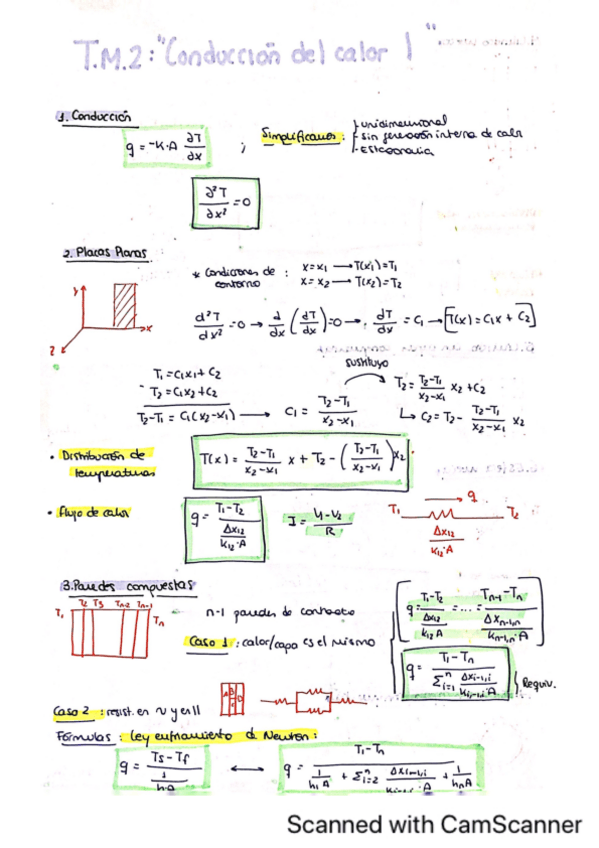 T.M.2: "Conducción del calor 1"
1. Conducción
q = -K·A ∂T/∂x ; Simplificamos: unidimensional
- sin generación interna de calor
- Estacionaria
∂²T/∂x² = 0
2. Placas Planas
* Condiciones de contorno : x=x₁ → T(x₁)=T₁
x=x₂ → T(x₂)=T₂
y x z
d²T/dx² = 0 → d/dx (dT/dx) = 0 → dT/dx = C₁ → T(x) = C₁x + C₂
T₁ = C₁x₁ + C₂
- T₂ = C₁x₂ + C₂
T₂-T₁ = C₁(x₂-x₁) → C₁ = T₂-T₁/x₂-x₁
sustituyo
T₂ = T₂-T₁/x₂-x₁ x₂ + C₂
↳ C₂ = T₂ - T₂-T₁/x₂-x₁ x₂
• Distribución de temperaturas
T(x) = T₂-T₁/x₂-x₁ x + T₂ - (T₂-T₁/x₂-x₁) x₂
• Flujo de calor
q = T₁-T₂ / Δx₁₂/K₁₂·A
I = V₁-V₂/R
q
T₁ T₂
Δx₁₂/K₁₂·A
3. Paredes compuestas
T₁ T₂ T₃ Tn-2 Tn-1 Tn
n-1 paredes de contacto
Caso 1: calor/capa es el mismo
q = T₁-T₂ / Δx₁₂/K₁₂A = .... = Tn-1-Tn / Δxn-1,n/Kn-1,n·A
q = T₁-Tn / Σⁿᵢ₌₁ Δxi-1,i/Ki-1,i·A
Requiv.
Caso 2 : resist. en y en II
A B C D
Fórmulas : Ley enfriamiento d. Newton :
q = Ts-Tf / 1/hA ↔ q = T₁-Tn / 1/h₁A + Σⁿᵢ₌₂ Δxi-1,i/Ki-1,i·A + 1/hnA
Scanned with CamScanner